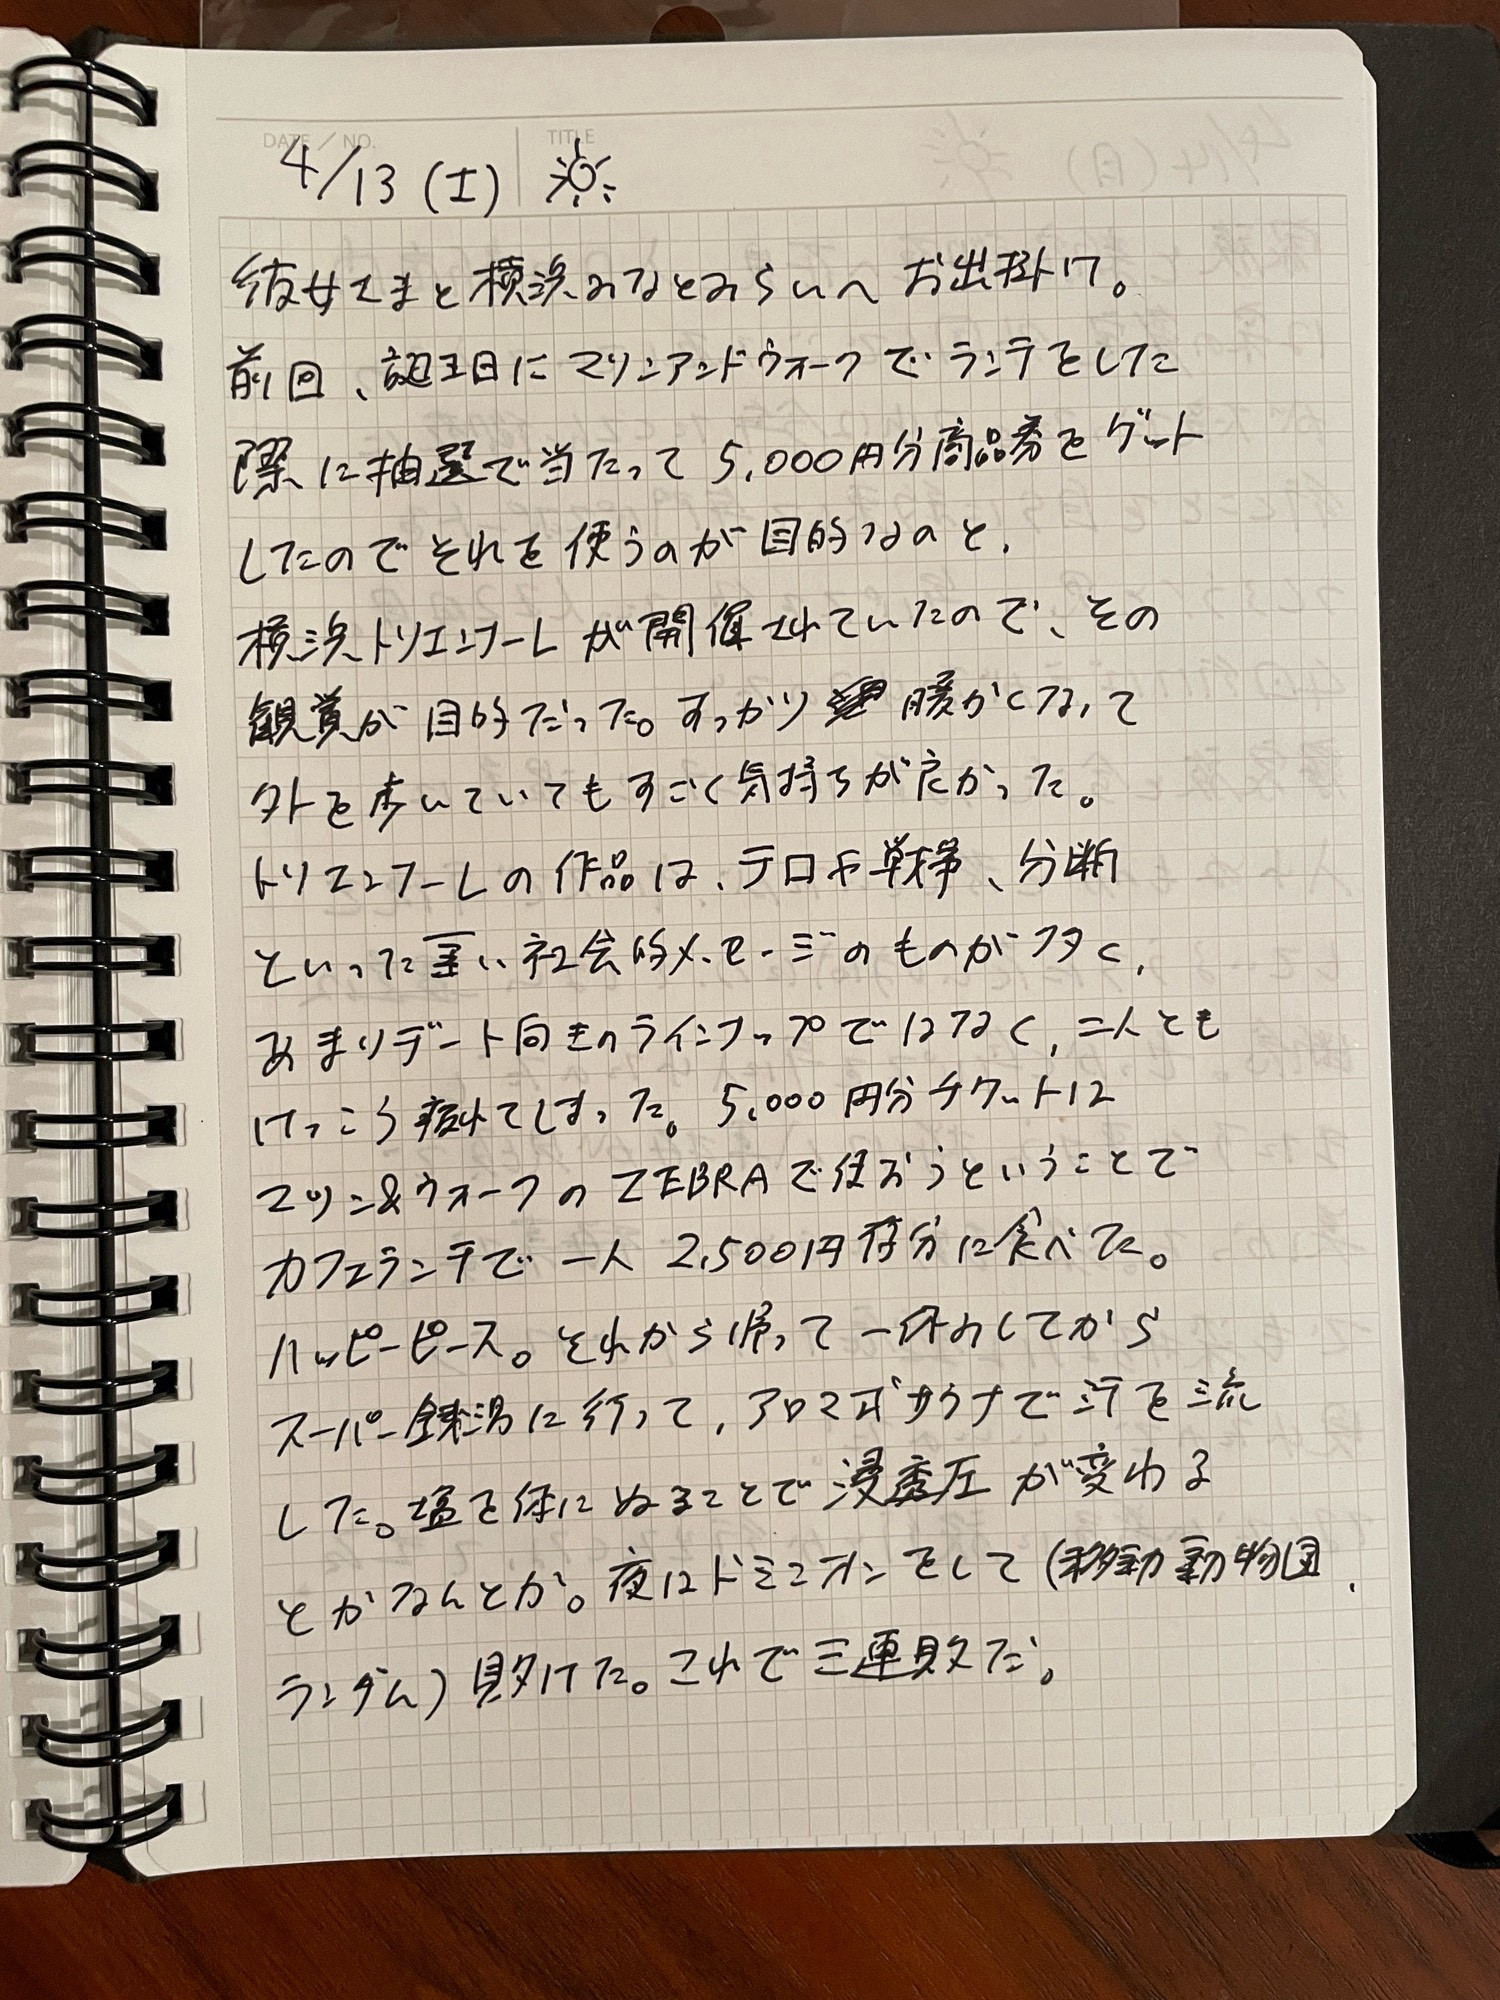 DATE / NO.
TITLE
4/13 (土)
彼女さまと横浜みなとみらいへお出掛け。
前回、誕生日にマリンアンドウォークでランチをした
際に抽選で当たって5,000円分商品券をゲット
したのでそれを使うのが目的なのと、
横浜トリエンナーレが開催されていたので、その
観賞が目的だった。すっかり暖かくなって
外を歩いていてもすごく気持ちが良かった。
トリエンナーレの作品は、テロや戦争、分断
といった重い社会的メッセージのものが多く、
あまりデート向きのラインナップではなく、二人とも
けっこう疲れてしまった。5,000円分チケットは
マリン&ウォークのZEBRAで使おうということで
カフェランチで一人2,500円存分に食べた。
ハッピーピース。それから帰って一休みしてから
スーパー銭湯に行って、アロマ塩サウナで汗を流
した。塩を体にぬることで浸透圧が変わる
とかなんとか。夜はドミニオンをして(移動動物園、
ランダム)敗けた。これで三連敗だ。